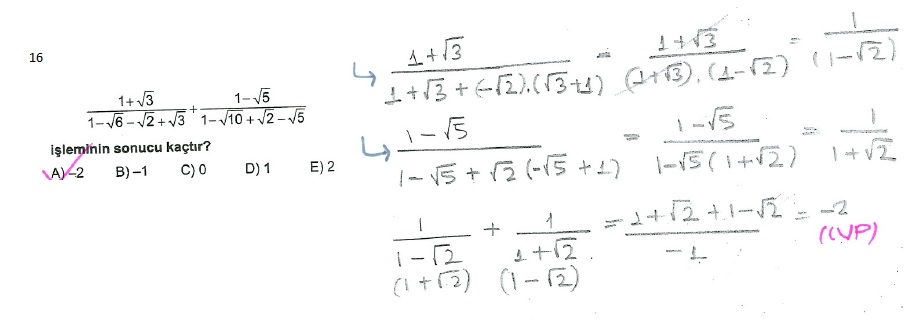 16
1+√3 / 1−√6−√2+√3 + 1−√5 / 1−√10+√2−√5
işleminin sonucu kaçtır?
A) −2 B) −1 C) 0 D) 1 E) 2
↳ 1+√3 / 1+√3+(−√2).(√3+1) = 1+√3 / (1+√3).(1−√2) = 1 / (1−√2)
↳ 1−√5 / 1−√5+√2(−√5+1) = 1−√5 / 1−√5(1+√2) = 1 / 1+√2
1 / 1−√2 + 1 / 1+√2 = 1+√2+1−√2 / −1 = −2
(1+√2) (1−√2)